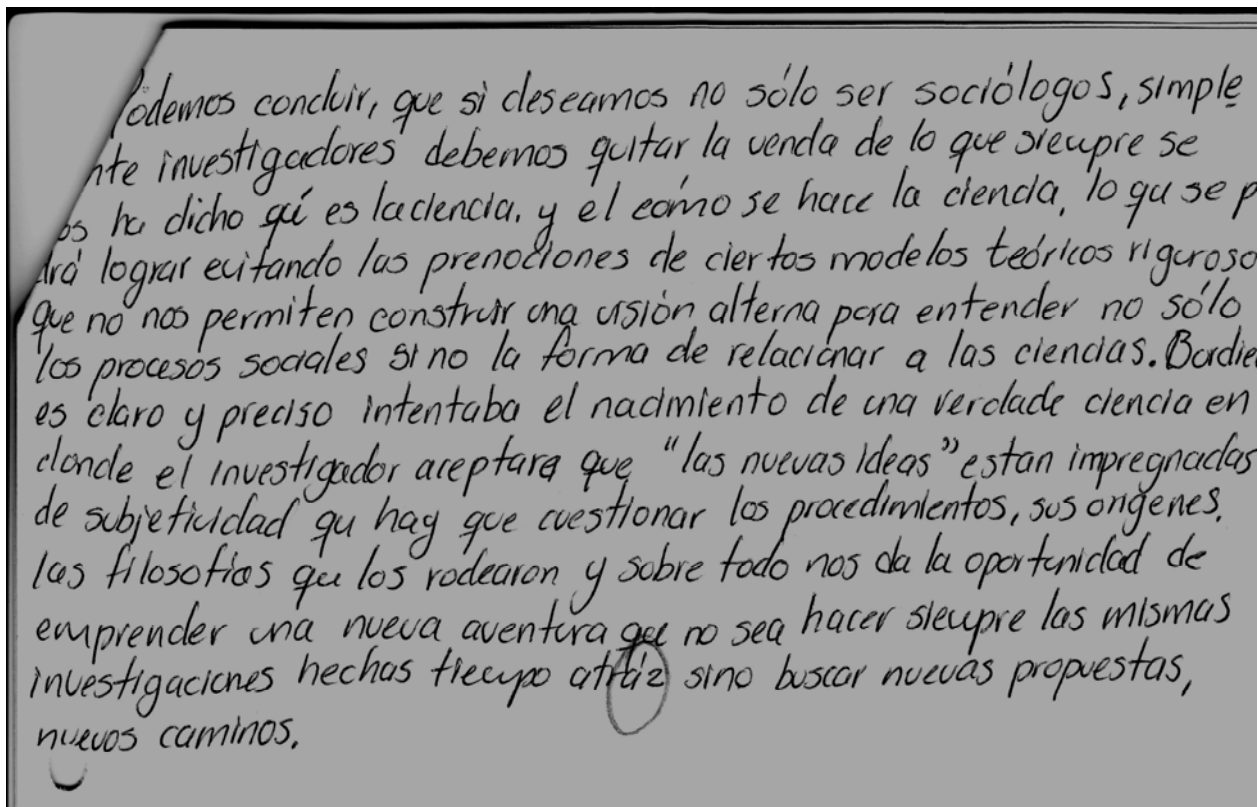 Podemos concluir, que si deseamos no sólo ser sociólogos, simple
nte investigadores debemos quitar la venda de lo que siempre se
os ha dicho qué es la ciencia, y el cómo se hace la ciencia, lo qu se p
drá lograr evitando las prenociones de ciertos modelos teóricos riguroso
que no nos permiten construir una visión alterna para entender no sólo
los procesos sociales sino la forma de relacionar a las ciencias. Bordie
es claro y preciso intentaba el nacimiento de una verdade ciencia en
donde el investigador aceptara que "las nuevas ideas" estan impregnadas
de subjetividad qu hay que cuestionar los procedimientos, sus orígenes,
las filosofías qu los rodearon y sobre todo nos da la oportunidad de
emprender una nueva aventura que no sea hacer siempre las mismas
investigaciones hechas tiempo atráz sino buscar nuevas propuestas,
nuevos caminos.